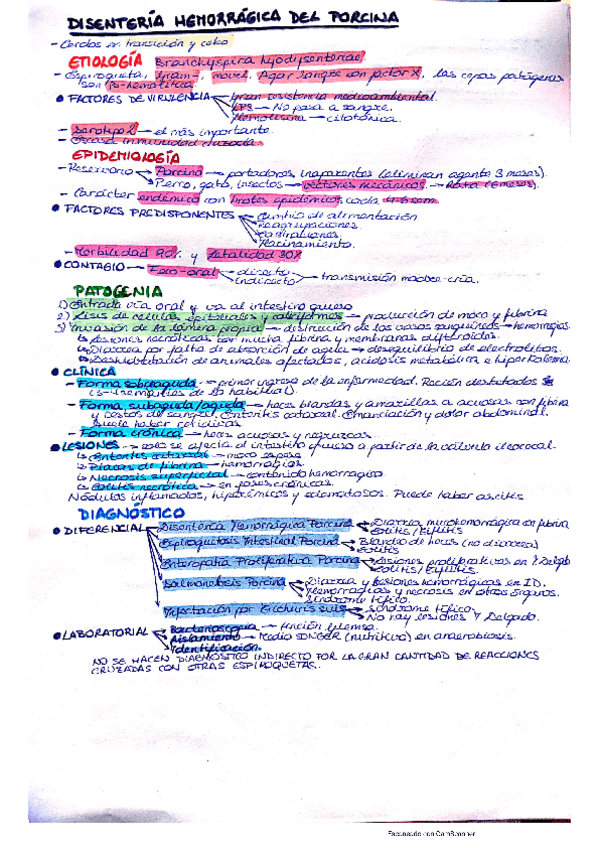 DISENTERÍA HEMORRÁGICA DEL PORCINA
- Cerdos en transición y cebo
ETIOLOGÍA Branchyspira hyodysenteriae
- Espiroqueta, Gram-, móvil. Agar sangre con factor X, las cepas patógenas
son β-hemolítica
• FACTORES DE VIRULENCIA → Gran resistencia medioambiental.
→ LPS — No pasa a sangre.
→ Hemolisina — citotóxica.
- Serotipo 2 — el más importante.
- Escasa inmunidad cruzada
EPIDEMIOLOGÍA
- Reservorio → Porcino → portadores inaparentes (eliminan agente 3 meses).
→ Perro, gato, insectos → vectores mecánicos → Rata (6 meses).
- Carácter endémico con brotes epidémicos cada 4-6 sem.
• FACTORES PREDISPONENTES → Cambio de alimentación
→ Reagrupaciones.
→ Hacinamiento.
- Morbilidad 90% y letalidad 30%
• CONTAGIO → Feco-oral → directo
→ indirecto → transmisión madre-cría.
PATOGENIA
1) Entrada vía oral y va al intestino grueso
2) Lisis de células epiteliales y caliciformes → producción de moco y fibrina
3) Invasión de la lámina propia → distrucción de los vasos sanguíneos → hemorragias.
↳ Lesiones necróticas con mucha fibrina y membranas difteroides.
↳ Diarrea por falta de absorción de agua → desequilibrio de electrolitos.
↳ Deshidratación de animales afectados, acidosis metabólica e hiperkalemia.
• CLÍNICA
- Forma sobreaguda → primer ingreso de la enfermedad. Ración
- Forma subaguda/aguda → heces blandas y amarillas a acuosas con fibrina
y restos de sangre. Enteritis catarral. Emanciación y dolor abdominal.
Suele haber recidivas
- Forma crónica → heces acuosas y negruzcas.
• LESIONES → solo se afecta el intestino grueso a partir de la válvula ileocecal.
↳ Enteritis catarral — moco espeso
↳ Placas de fibrina — hemorragias.
↳ Necrosis superficial — contenido hemorrágico
↳ Colitis necrótica — en fases crónicas.
Nódulos inflamados, hiperémicos y edematosos. Puede haber ascitis
DIAGNÓSTICO
• DIFERENCIAL → Disentería Hemorrágica Porcina → Diarrea mucohemorrágica con fibrina
→ Colitis/Tiflitis
→ Espiroquetosis Intestinal Porcina → Blando de heces (no diarrea)
→ Colitis
→ Enteropatía Proliferativa Porcina → Lesiones proliferativas en I. Delgado
→ Colitis/Tiflitis.
→ Salmonelosis Porcina → Diarrea y lesiones hemorrágicas en ID.
→ Hemorragias y necrosis en otros órganos.
→ Síndrome tífico.
→ Infestación por Trichuris suis → Síndrome tífico.
→ No hay lesiones I Delgado.
• LABORATORIAL → Bacterioscopía — tinción Giemsa.
→ Aislamiento — Medio (nutritivo) en anaerobiosis.
→ Identificación.
NO SE HACEN DIAGNÓSTICO INDIRECTO POR LA GRAN CANTIDAD DE REACCIONES
CRUZADAS CON OTRAS ESPIROQUETAS.
Escaneado con CamScanner